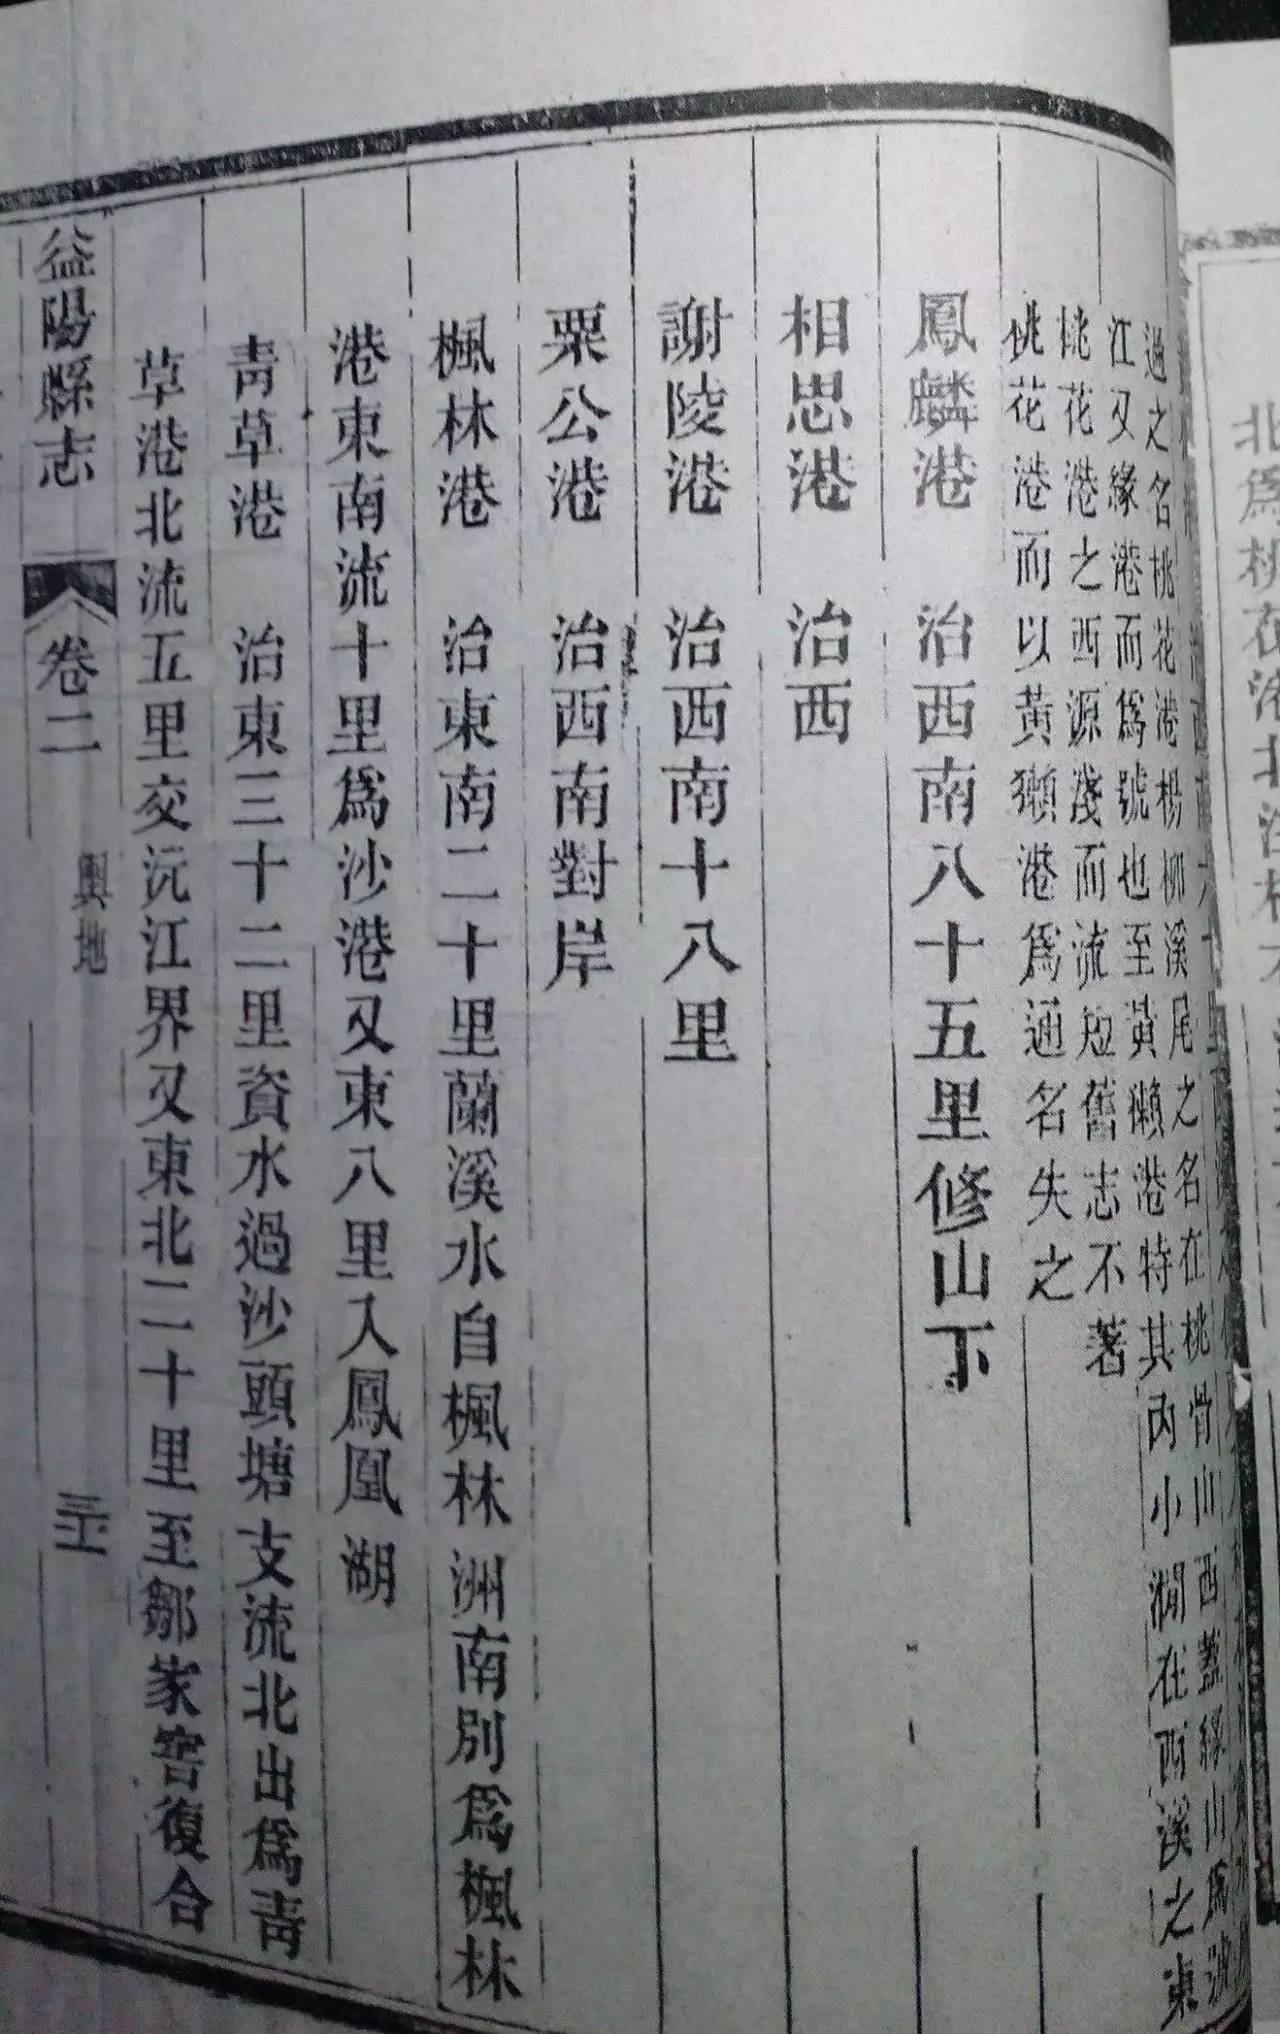 過之名桃花港楊柳溪尾之名在桃骨山西蓋緣山為號
江又緣港而為號也至黃獺港特其內小澗在西溪之東
桃花港之西源淺而流短舊志不著
桃花港而以黃獺港為通名失之
鳳麟港 治西南八十五里修山下
相思港 治西
謝陵港 治西南十八里
粟公港 治西南對岸
楓林港 治東南二十里蘭溪水自楓林洲南別為楓林
港東南流十里為沙港又東八里入鳳凰湖
靑草港 治東三十二里資水過沙頭塘支流北出為靑
草港北流五里交沅江界又東北二十里至鄒家窖復合
益陽縣志 卷二 輿地
北為桃花港北